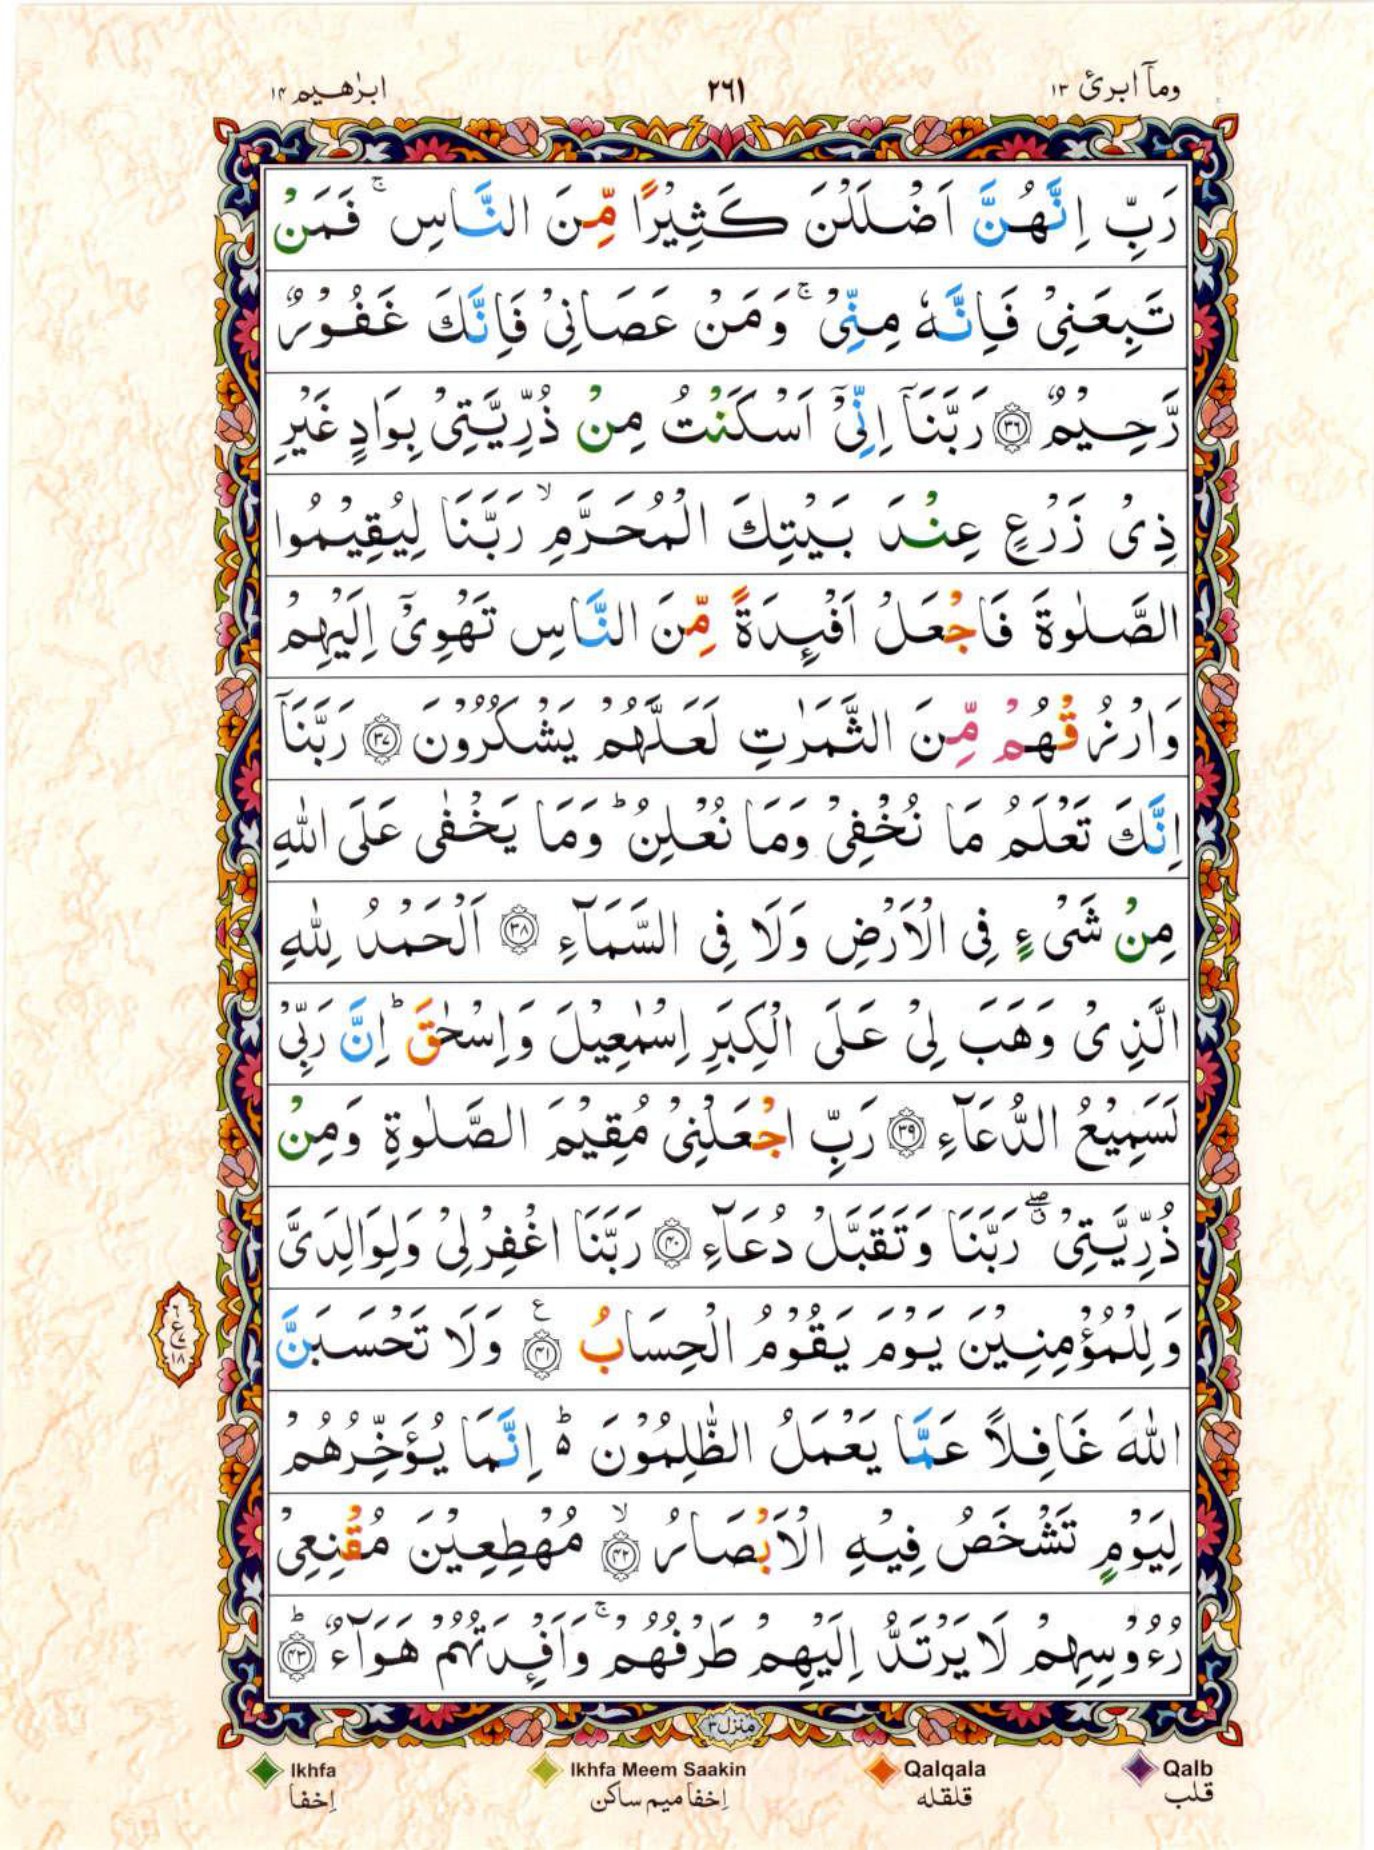 ومآ ابرئ ١٣
٢٦١
ابرٰهيم ١٤
رَبِّ اِنَّهُنَّ اَضْلَلْنَ كَثِيْرًا مِّنَ النَّاسِ ۚ فَمَنْ
تَبِعَنِيْ فَاِنَّهٗ مِنِّيْ ۚ وَمَنْ عَصَانِيْ فَاِنَّكَ غَفُوْرٌ
رَّحِيْمٌ ﴿٣٦﴾ رَبَّنَآ اِنِّيْٓ اَسْكَنْتُ مِنْ ذُرِّيَّتِيْ بِوَادٍ غَيْرِ
ذِيْ زَرْعٍ عِنْدَ بَيْتِكَ الْمُحَرَّمِ ۙ رَبَّنَا لِيُقِيْمُوا
الصَّلٰوةَ فَاجْعَلْ اَفْئِدَةً مِّنَ النَّاسِ تَهْوِيْٓ اِلَيْهِمْ
وَارْزُقْهُمْ مِّنَ الثَّمَرٰتِ لَعَلَّهُمْ يَشْكُرُوْنَ ﴿٣٧﴾ رَبَّنَآ
اِنَّكَ تَعْلَمُ مَا نُخْفِيْ وَمَا نُعْلِنُ ؕ وَمَا يَخْفٰى عَلَى اللّٰهِ
مِنْ شَيْءٍ فِي الْاَرْضِ وَلَا فِي السَّمَآءِ ﴿٣٨﴾ اَلْحَمْدُ لِلّٰهِ
الَّذِيْ وَهَبَ لِيْ عَلَى الْكِبَرِ اِسْمٰعِيْلَ وَاِسْحٰقَ ؕ اِنَّ رَبِّيْ
لَسَمِيْعُ الدُّعَآءِ ﴿٣٩﴾ رَبِّ اجْعَلْنِيْ مُقِيْمَ الصَّلٰوةِ وَمِنْ
ذُرِّيَّتِيْ ۖ رَبَّنَا وَتَقَبَّلْ دُعَآءِ ﴿٤٠﴾ رَبَّنَا اغْفِرْ لِيْ وَلِوَالِدَيَّ
وَلِلْمُؤْمِنِيْنَ يَوْمَ يَقُوْمُ الْحِسَابُ ﴿٤١﴾ ع وَلَا تَحْسَبَنَّ
اللّٰهَ غَافِلًا عَمَّا يَعْمَلُ الظّٰلِمُوْنَ ؕ۬ اِنَّمَا يُؤَخِّرُهُمْ
لِيَوْمٍ تَشْخَصُ فِيْهِ الْاَبْصَارُ ﴿٤٢﴾ ۙ مُهْطِعِيْنَ مُقْنِعِيْ
رُءُوْسِهِمْ لَا يَرْتَدُّ اِلَيْهِمْ طَرْفُهُمْ ۚ وَاَفْئِدَتُهُمْ هَوَآءٌ ﴿٤٣﴾ ؕ
٦
ع ٧
١٨
منزل ٣
Ikhfa
اِخفا
Ikhfa Meem Saakin
اِخفا ميم ساكن
Qalqala
قلقله
Qalb
قلب